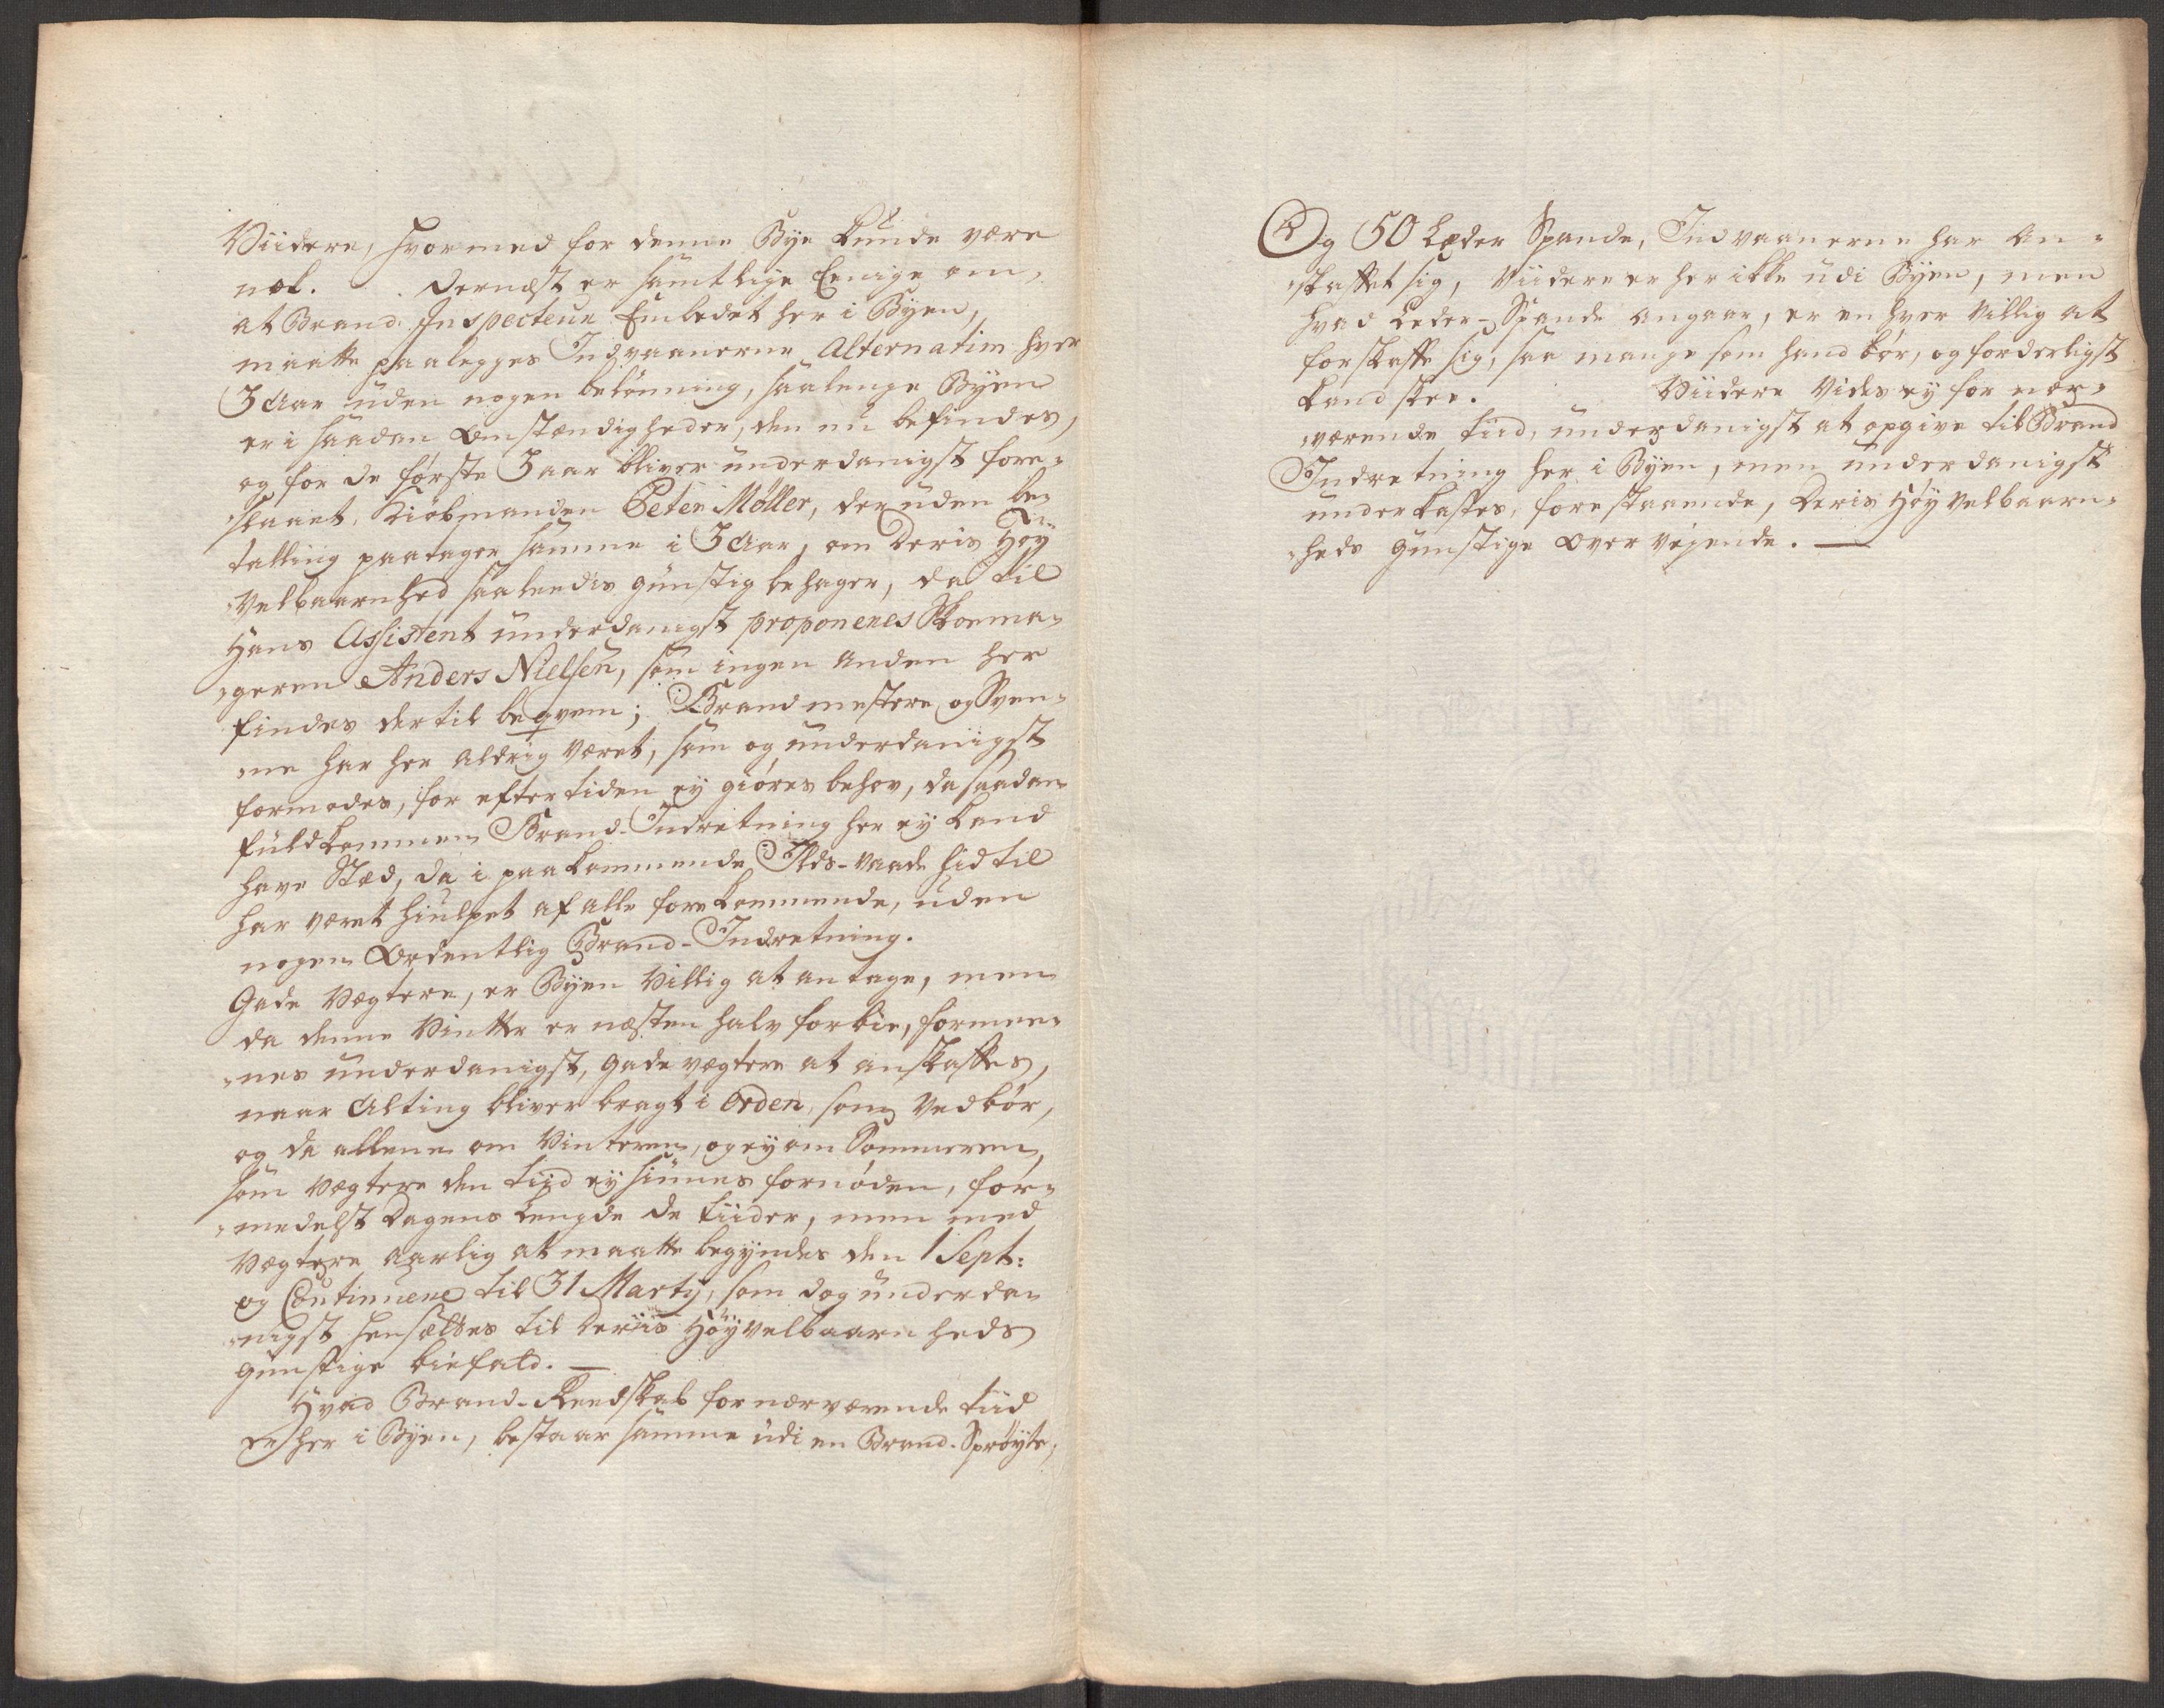 Viidere, hvormed for denne Bye kunde være
nok. . dernæst er samtlige Eenige om,
at Brand-Inspecteur Embedet her i Byen,
maatte paalegges Indvaanerne Alternatim hver
3 Aar uden nogen belønning, saalenge Byen
er i saadan Omstændigheder, den nu befindes,
og for de første 3 aar bliver underdanigst fore-
slaaet, Kiøbmanden Peter Møller, der uden be-
talling paatager samme i 3 Aar, om Deris Høy
Velbaarnhed saaledis gunstig behager, da til
Hans Assistent underdanigst proponeres Skoema-
geren Anders Nielsen, som ingen anden her
findes dertil beqvem; Brandmestere og Sven-
ne har her aldrig været, som og underdanigst
formodes, for eftertiden ey giøres behov, da saadan
fuldkommen Brand-Indretning her ey kand
have Stæd, da i paakommende Ilds-vaade hidtil
har været hiulpet af alle forekommende, uden
nogen Ordentlig Brand-Indretning.
Gade Vægtere, er Byen Villig at antage, men
da denne Vinter er næsten halv forbie, formee-
nes underdanigst, Gade vægtere at anskaffes,
naar Alting bliver bragt i Orden, som Vedbør,
og da allene om Vinteren, og ey om Sommeren,
som Vægtere den tiid ey siunes fornøden, for-
medelst Dagens Længde de tiider, men med
Vægtere aarlig at maatte begyndes den 1 Sept:
og Continuere til 31 Marty, som dog underda-
nigst hensættes til Deriis Høyvelbaarnheds
gunstige biefald. —
Hvad Brand-Reedskab for nærværende tiid
er her i Byen, bestaar samme udi en Brand-Sprøyte,
Og 50 Læder Spande, Indvaanerne har An-
skaffet sig, Viidere er her ikke udi Byen, men
hvad Leder-Spande angaar, er enhver Villig at
forskaffe sig, saa mange som hand bør, og forderligst
kand skee. Viidere Vides ey for nær-
værende tiid, underdanigst at opgive til Brand
Indretning her i Byen, men underdanigst
underkastes, forestaaende, Deris Høy Velbaarn-
heds gunstige Overvejende. —